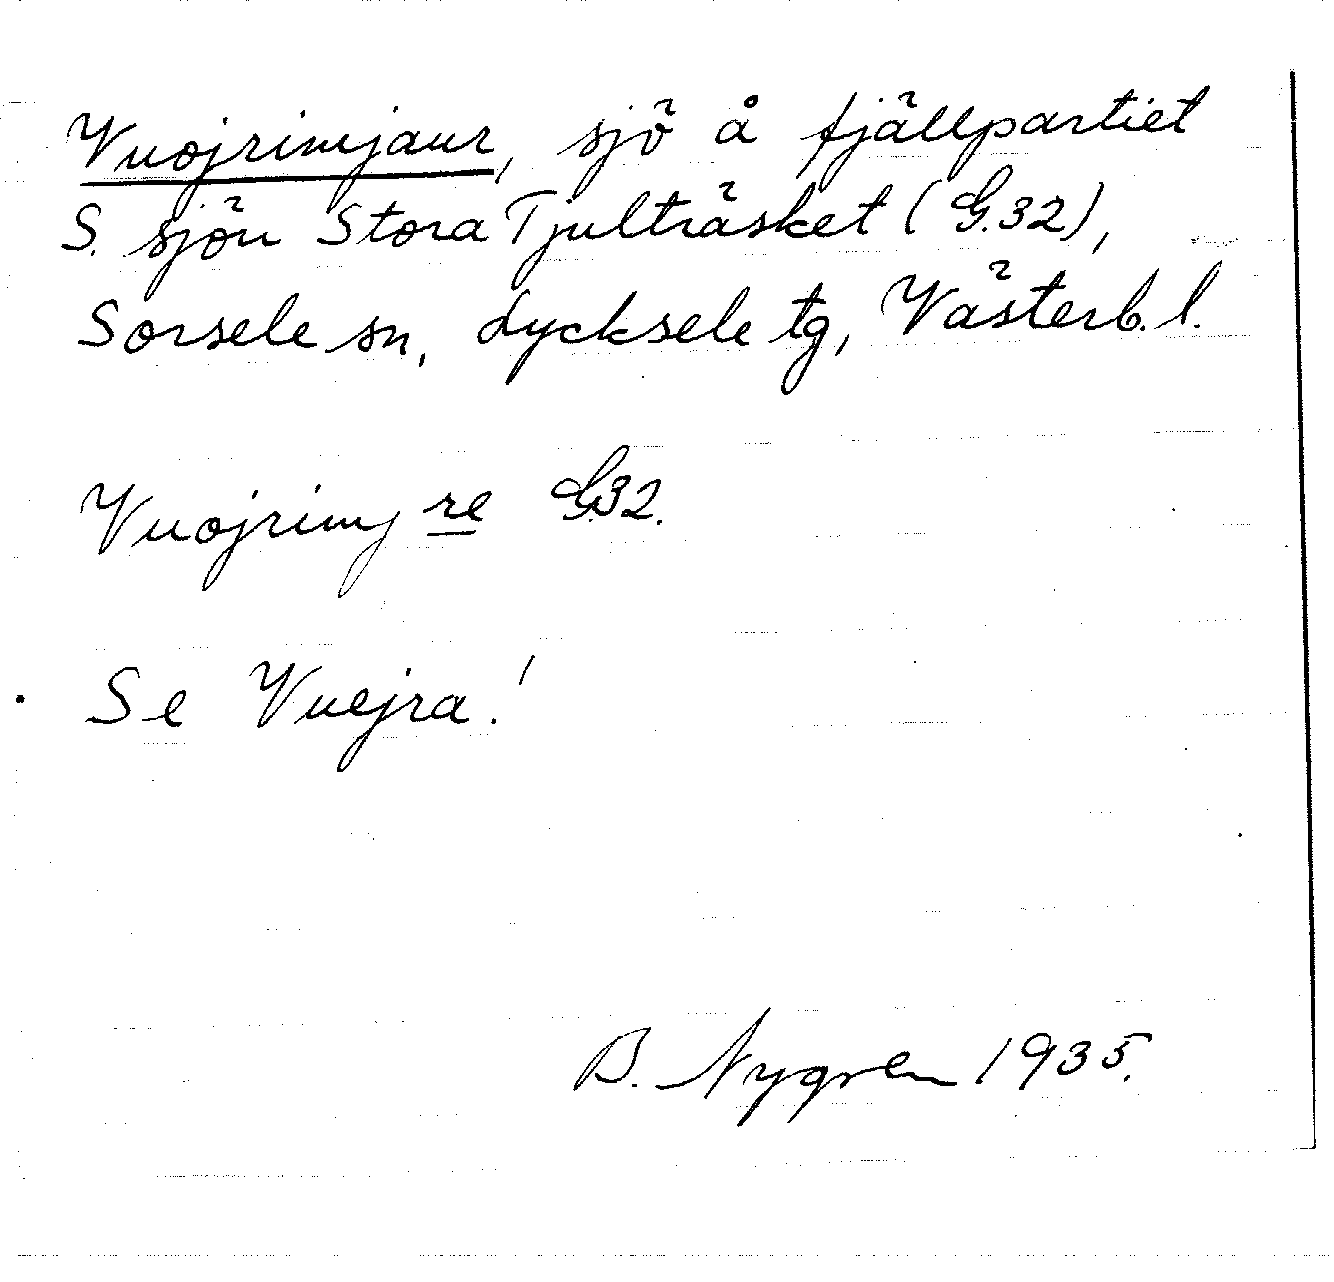 Vuojrimjaur, sjö å fjällpartiet
S. sjön Stora Tjulträsket (G.32),
Sorsele sn, Lycksele tg, Västerb. l.
Vuojrimj re G.32.
Se Vuejra!
B. Nygren 1935.